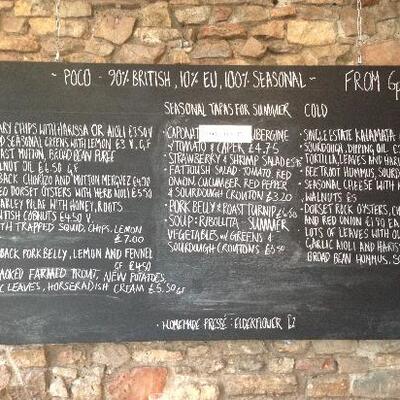 ~ POCO - 90% BRITISH, 10% EU, 100% SEASONAL ~ FROM 6p
ARY CHIPS WITH HARISSA OR AIOLI £3.50 V
D SEASONAL GREENS WITH LEMON £3 V, GF
AST MUTTON, BROAD BEAN PUREE
LNUT OIL £6.50 GF
BACK CHORIZO AND MUTTON MERGUEZ £4.50
ED DORSET OYSTERS WITH HERB AIOLI £5.50
BARLEY PILAF WITH HONEY, ROOTS
TISH COBNUTS £4.50 V
TH TRAPPED SQUID, CHIPS, LEMON
£7.00
BACK PORK BELLY, LEMON AND FENNEL
GF £4.50
MOKED FARMED TROUT, NEW POTATOES,
C LEAVES, HORSERADISH CREAM £5.50 GF
SEASONAL TAPAS FOR SUMMER
UBERGINE
TOMATO & CAPER £4.75
· STRAWBERRY & SHRIMP SALAD
· FATTOUSH SALAD · TOMATO RED
ONION, CUCUMBER, RED PEPPER
& SOURDOUGH CROUTON £3.20
· PORK BELLY & ROAST TURNIP £6.50
· SOUP : RIBOLLITA - SUMMER
VEGETABLES w/ GREENS &
SOURDOUGH CROUTONS £3.50
· HOMEMADE PRESSÉ : ELDERFLOWER £2
COLD
· SINGLE ESTATE KALAMATA
SOURDOUGH, DIPPING OIL £
· TORTILLA, LEAVES AND HAR
· BEETROOT HUMMUS, SOURD
· SEASONAL CHEESE WITH
WALNUTS £5
· DORSET ROCK OYSTERS, C
AND RED ONION £1.50 EA
· LOTS OF LEAVES WITH OL
· GARLIC AIOLI AND HARIS
· BROAD BEAN HUMMUS, SO